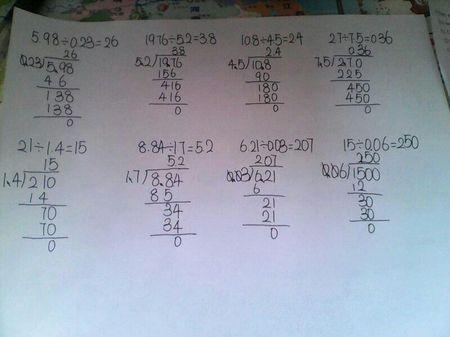 5.98÷0.23=26
26
0.23)5.98
46
138
138
0
19.76÷5.2=3.8
3.8
5.2)19.76
156
416
416
0
10.8÷4.5=2.4
2.4
4.5)10.8
90
180
180
0
2.7÷7.5=0.36
0.36
7.5)2.70
225
450
450
0
21÷1.4=15
15
1.4)210
14
70
70
0
8.84÷1.7=5.2
5.2
1.7)8.84
85
34
34
0
6.21÷0.03=207
207
0.03)6.21
6
21
21
0
15÷0.06=250
250
0.06)1500
12
30
30
0